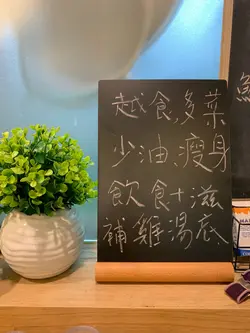 越食,多菜
少油,瘦身
飲食+滋
補雞湯底、